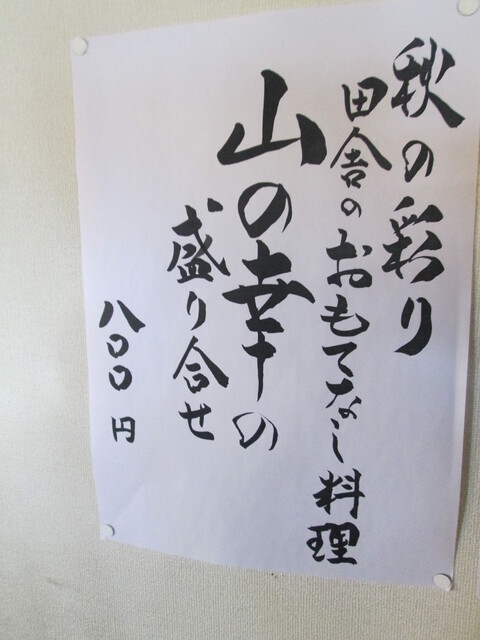 秋の彩り
田舎のおもてなし料理
山の幸の
盛り合せ
八〇〇円